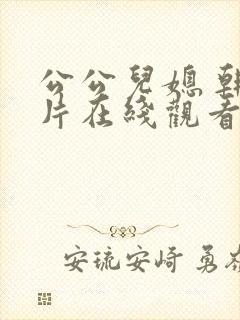 公公兒媳
片在綫觀看
安琉安崎 勇